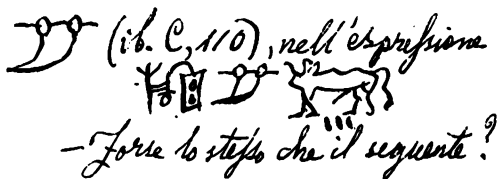 (ib. C, 110), nell'espressione
– Forse lo stesso che il seguente?